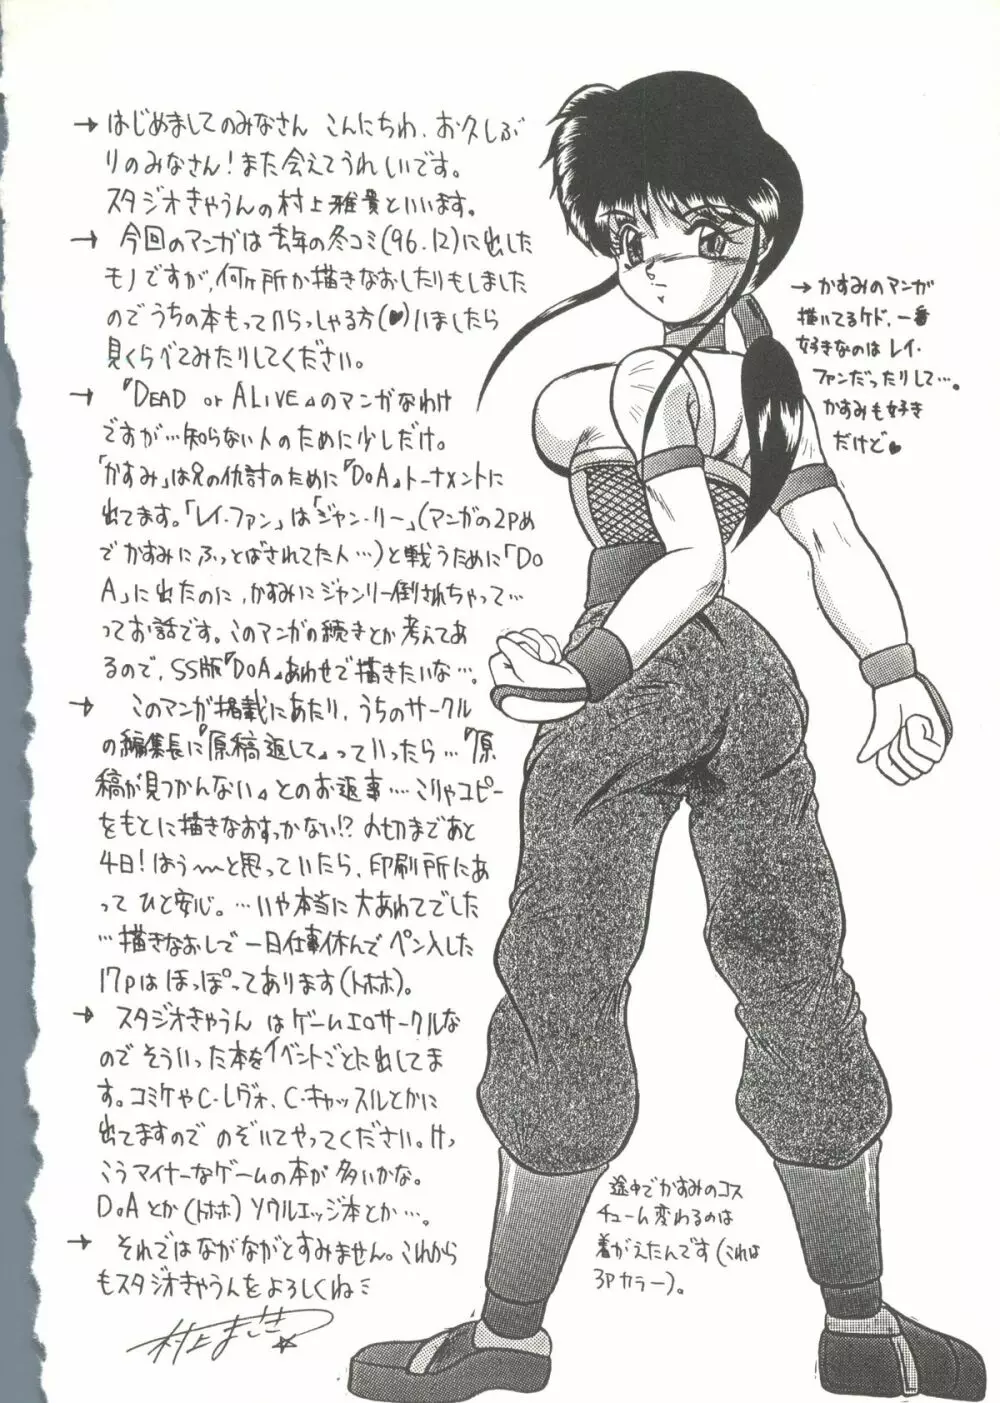 → はじめましてのみなさん こんにちわ、お久しぶ
りのみなさん!また会えてうれしいです。
スタジオきゃうんの村上雅貴といいます。
→ 今回のマンガは去年の冬コミ(96.12)に出した
モノですが、何ヶ所か描きなおしたりもしました
のでうちの本もっていらっしゃる方(♥)いましたら
見くらべてみたりしてください。
→ 『DEAD or ALIVE』のマンガなわけ
ですが…知らない人のために少しだけ。
「かすみ」は兄の仇討のために『DoA』トーナメントに
出てます。「レイ・ファン」は「ジャン・リー」(マンガの2Pめ
でかすみにふっとばされてた人…)と戦うために「Do
A」に出たのに、かすみにジャンリー倒されちゃって…
ってお話です。このマンガの続きとか考えてあ
るので、SS版『DoA』あわせで描きたいな…。
→ このマンガ掲載にあたり、うちのサークル
の編集長に『原稿返して』っていったら…『原
稿が見つかんない』とのお返事…こりゃコピー
をもとに描きなおすっかない!?〆切まであと
4日!はう〜〜と思っていたら、印刷所にあ
ってひと安心。…いや本当に大あわてでした
…描きなおしで一日仕事休んでペン入した
17Pはほっぽってあります(トホホ)。
→ スタジオきゃうん はゲームエロサークルな
のでそういった本をイベントごとに出してま
す。コミケやC・レヴォ、C・キャッスルとかに
出てますので のぞいてやってください。けっ
こうマイナーなゲームの本が多いかな。
DoAとか(トホホ)ソウルエッジ本とか…。
→ それではながながとすみません。これから
もスタジオきゃうんをよろしくね
村上まさき☆
→ かすみのマンガ
描いてるケド、一番
好きなのはレイ・
ファンだったりして…。
かすみも好き
だけど♥
途中でかすみのコス
チューム変わるのは
着がえたんです(これは
3Pカラー)。